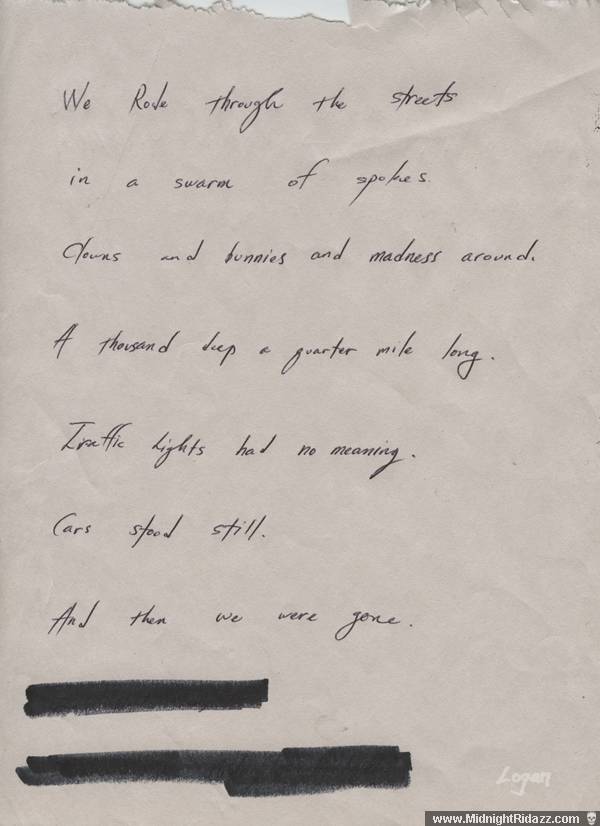 We Rode through the streets
in a swarm of spokes.
Clowns and bunnies and madness around.
A thousand deep a quarter mile long.
Traffic Lights had no meaning.
Cars stood still.
And then we were gone.
Logan
www.MidnightRidazz.com